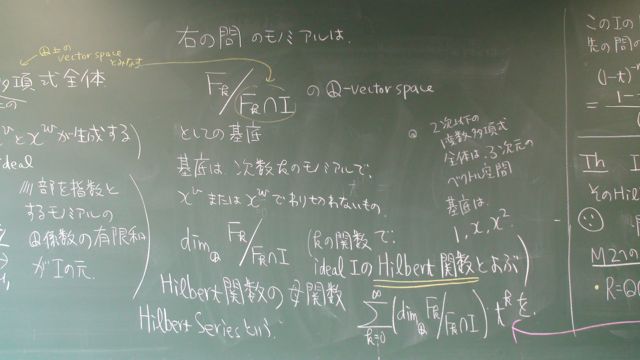 Q上の
vector space
とみなす
項式全体
x^v と x^w が生成する
ideal
部を指数と
するモノミアルの
Q係数の有限和
が I の元.
右の問 のモノミアルは.
F_k / F_k∩I の Q-vector space
としての基底
基底は 次数 k のモノミアルで,
x^v または x^w でわり切れないもの.
dim_Q F_k / F_k∩I (k の関数で:
ideal I の Hilbert 関数とよぶ)
Hilbert 関数の母関数
Σ_{k=0}^{∞} (dim_Q F_k / F_k∩I) · t^k を.
Hilbert Series という.
2次以下の
1変数多項式
全体は 3次元の
ベクトル空間
基底は
1, x, x².
この I の
先の問の
Th I
その Hil
M2 での
• R=Q